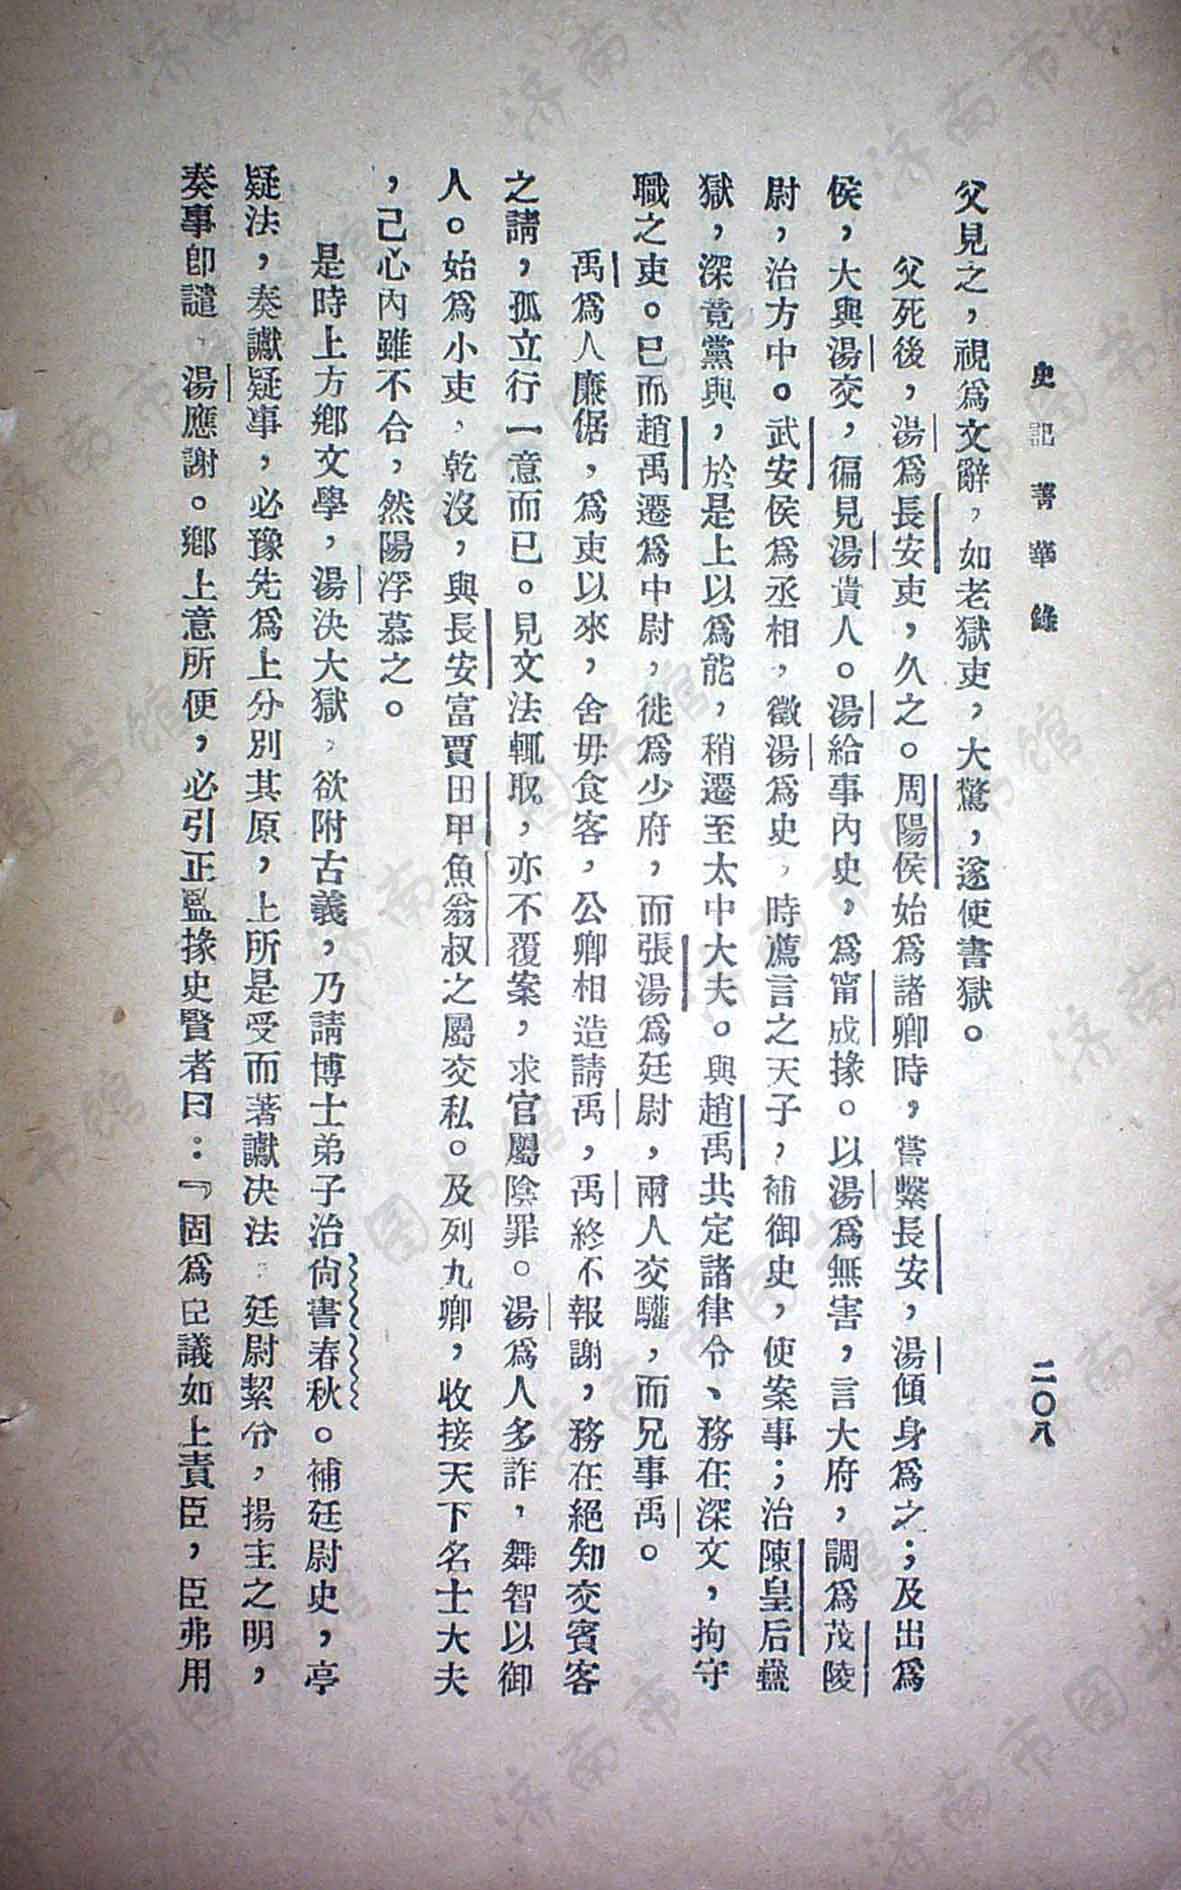 史記菁華錄
二〇八
父見之，視爲文辭，如老獄吏，大驚，遂使書獄。
父死後，湯爲長安吏，久之。周陽侯始爲諸卿時，嘗繫長安，湯傾身爲之；及出爲
侯，大與湯交，徧見湯貴人。湯給事內史，爲甯成掾。以湯爲無害，言大府，調爲茂陵
尉，治方中。武安侯爲丞相，徵湯爲史，時薦言之天子，補御史，使案事；治陳皇后蠱
獄，深竟黨與，於是上以爲能，稍遷至太中大夫。與趙禹共定諸律令、務在深文，拘守
職之吏。已而趙禹遷爲中尉，徙爲少府，而張湯爲廷尉，兩人交驩，而兄事禹。
禹爲人廉倨，爲吏以來，舍毋食客，公卿相造請禹，禹終不報謝，務在絕知交賓客
之請，孤立行一意而已。見文法輒取，亦不覆案，求官屬陰罪。湯爲人多詐，舞智以御
人。始爲小吏，乾沒，與長安富賈田甲魚翁叔之屬交私。及列九卿，收接天下名士大夫
，己心內雖不合，然陽浮慕之。
是時上方鄉文學，湯決大獄，欲附古義，乃請博士弟子治尙書春秋。補廷尉史，亭
疑法，奏讞疑事，必豫先爲上分別其原，上所是受而著讞决法　廷尉絜令，揚主之明，
奏事卽譴，湯應謝。鄉上意所便，必引正監掾史賢者曰：『固爲臣議如上責臣，臣弗用
济南市图书馆